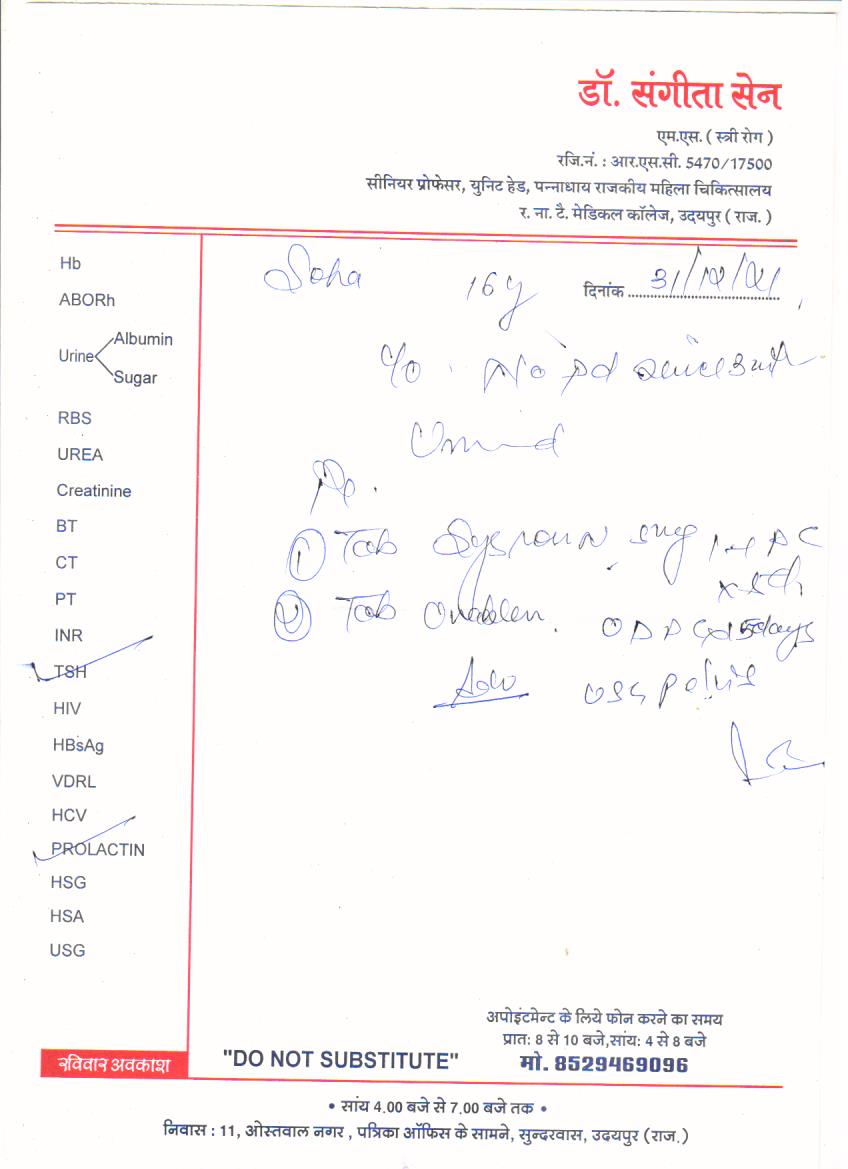 डॉ. संगीता सेन
एम.एस. ( स्त्री रोग )
रजि.नं. : आर.एस.सी. 5470/17500
सीनियर प्रोफेसर, युनिट हेड, पन्नाधाय राजकीय महिला चिकित्सालय
र. ना. टै. मेडिकल कॉलेज, उदयपुर ( राज. )
Hb
ABORh
Urine
Albumin
Sugar
RBS
UREA
Creatinine
BT
CT
PT
INR
TSH
HIV
HBsAg
VDRL
HCV
PROLACTIN
HSG
HSA
USG
16y दिनांक 31/12/21
C/O . No pd since 3
Rx.
1 Tab 5mg
2 Tab OD PC x 5days
Adv USG pelvis
अपोइंटमेन्ट के लिये फोन करने का समय
प्रातः 8 से 10 बजे,सांयः 4 से 8 बजे
मो. 8529469096
रविवार अवकाश
"DO NOT SUBSTITUTE"
• सांय 4.00 बजे से 7.00 बजे तक •
निवास : 11, ओस्तवाल नगर , पत्रिका ऑफिस के सामने, सुन्दरवास, उदयपुर (राज.)